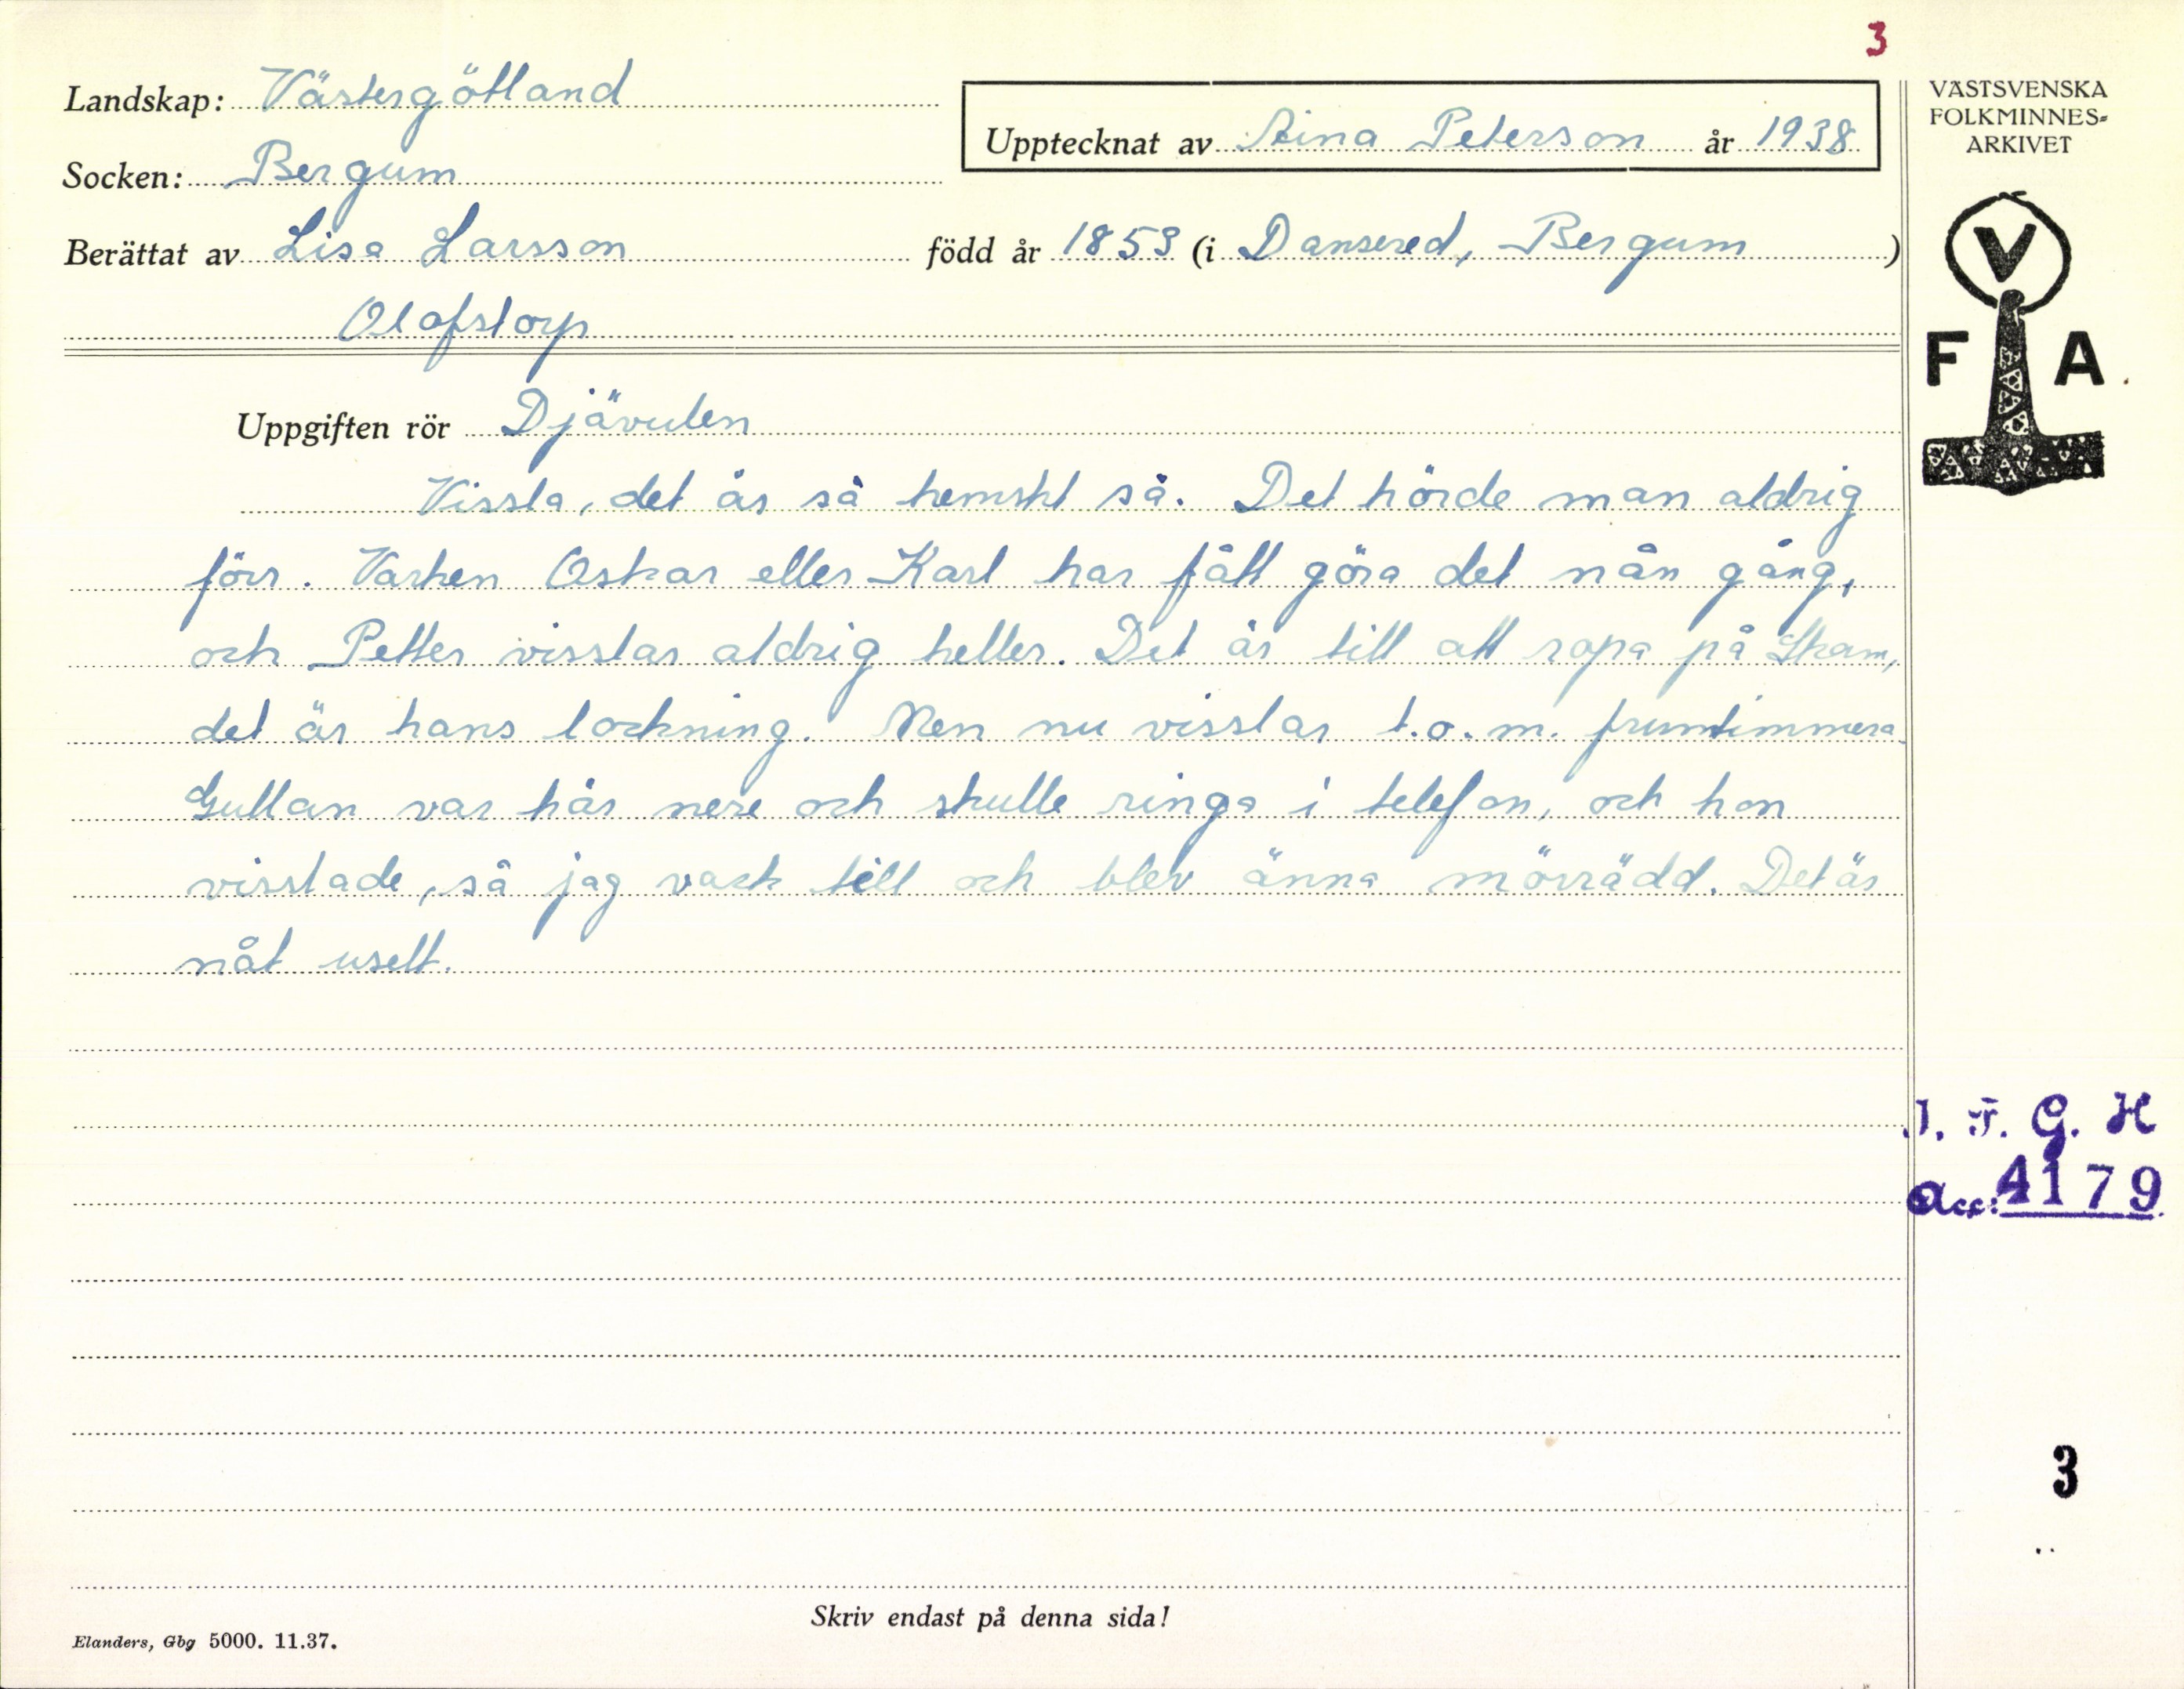 3
Landskap: Västergötland
Upptecknat av Aina Peterson år 1938
Socken: Bergum
Berättat av Lisa Larsson född år 1853 (i Dansered, Bergum)
Olofstorp
Uppgiften rör Djävulen
Vissla, det är så hemskt så. Det hörde man aldrig
förr. Varken Oskar eller Karl har fått göra det nån gång,
och Petter visslar aldrig heller. Det är till att ropa på Skam,
det är hans lockning. Men nu visslar t.o.m. fruntimmera.
Gullan var här nere och skulle ringa i telefon, och hon
visslade, så jag vack till och blev änna mörrädd. Det är
nåt uselt.
Skriv endast på denna sida!
Elanders, Gbg 5000. 11.37.
VÄSTSVENSKA
FOLKMINNES-
ARKIVET
V
F A
I. F. G. H
Acc: 4179
3